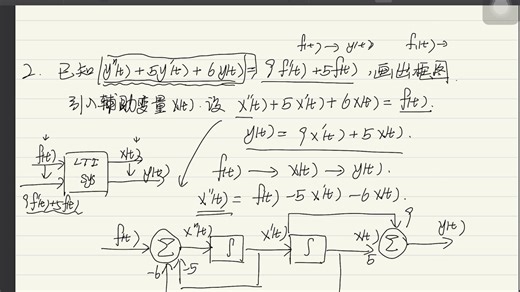 f(t)→y(t) f₁(t)→
2. 已知 y''(t)+5y'(t)+6y(t)=9f'(t)+5f(t), 画出框图.
引入辅助变量x(t). 设 x''(t)+5x'(t)+6x(t)=f(t).
y(t)=9x'(t)+5x(t).
f(t) LTI sys x(t) y(t)
9f'(t)+5f(t)
f(t)→x(t)→y(t).
x''(t)=f(t)-5x'(t)-6x(t).
f(t) Σ x''(t) ∫ x'(t) ∫ x(t) Σ y(t)
-6 -5 5 9